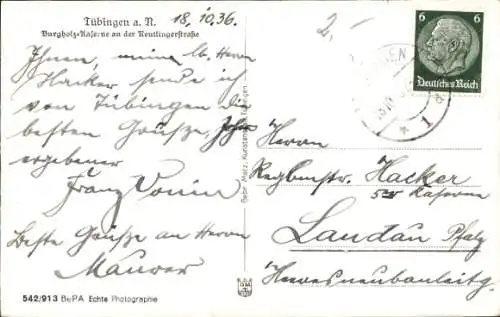 Tübingen a. N.
18.10.36.
Burgholz-Kaserne an der Reutlingerstraße
2,-
Ihnen, meine lb. Herrn
Hacker sende ich
von Tübingen die
besten Grüße, Ihr
ergebener
Franz
Beste Grüße an Herrn
Maurer
542/913 BePA Echte Photographie
Gebr. Metz, Kunstanst. Tübingen
6 6
Deutsches Reich
Herrn
Hacker
Kaserne
Landau Pfalz
Heeresneubauleitg